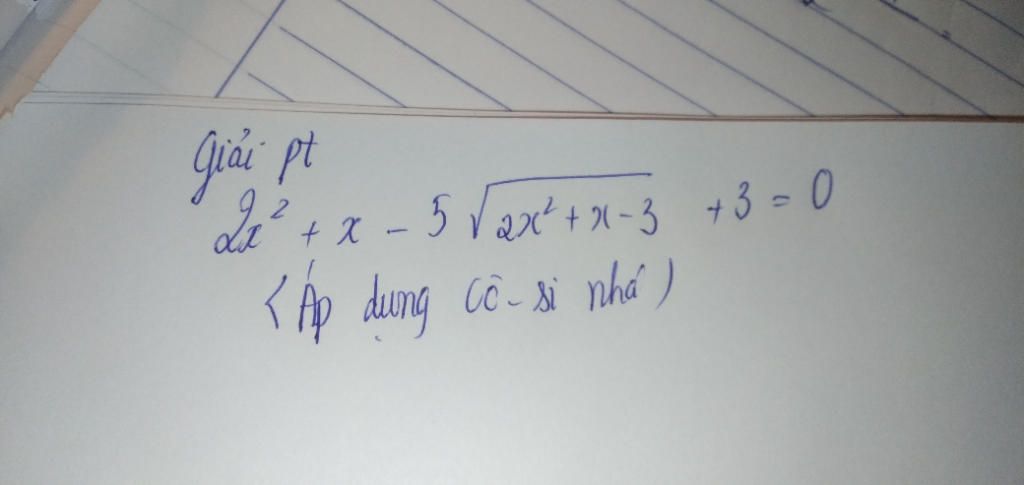 Giải pt
2x² + x - 5√(2x² + x - 3) + 3 = 0
(Áp dụng Cô-si nhá)